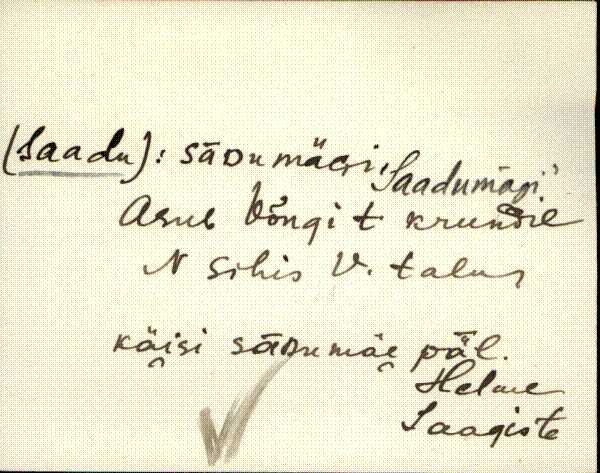 (Saadu): sāDumäGi, "Saadumägi"
Asub Võngi t krundil
N sihis V. talus
käi̯si sāDumäe̯ pǟl.
Helme
Laagiste